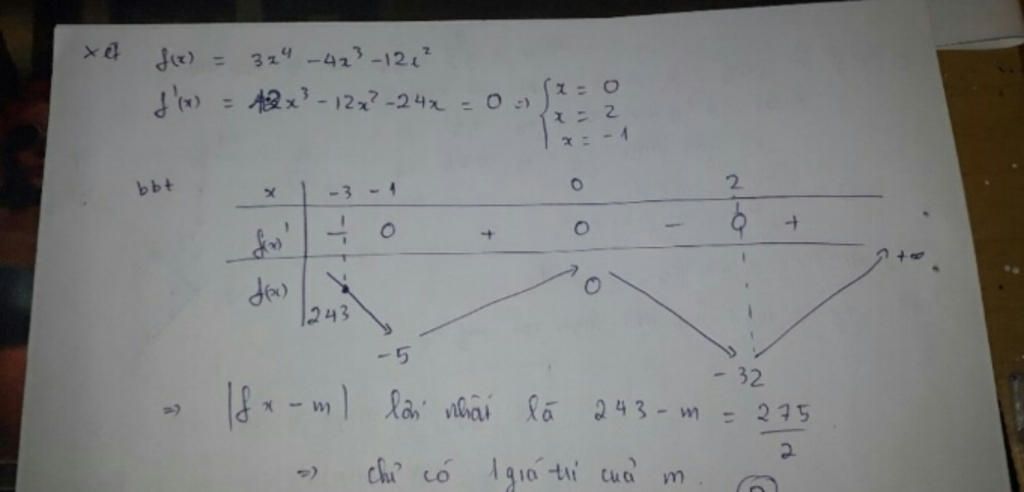 xét f(x) = 3x⁴ - 4x³ - 12x²
f'(x) = 12x³ - 12x² - 24x = 0 => { x = 0
x = 2
x = -1
bbt
x -3 -1 0 2
f(x)' - 0 + 0 - 0 +
f(x) 243 -5 0 -32 +∞
=> |fx - m| lớn nhất là 243 - m = 275/2
=> chỉ có 1 giá trị của m.